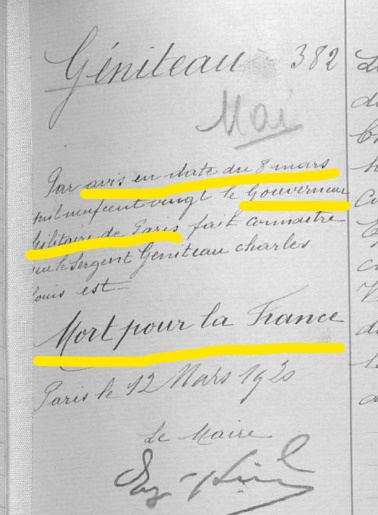 Géniteau 382
Mai
Par avis en date du 8 mars
mil neufcent vingt le Gouverneur
Militaire de Paris fait connaitre
que le Sergent Géniteau charles
Louis est
Mort pour la France
Paris le 12 Mars 1920
Le Maire